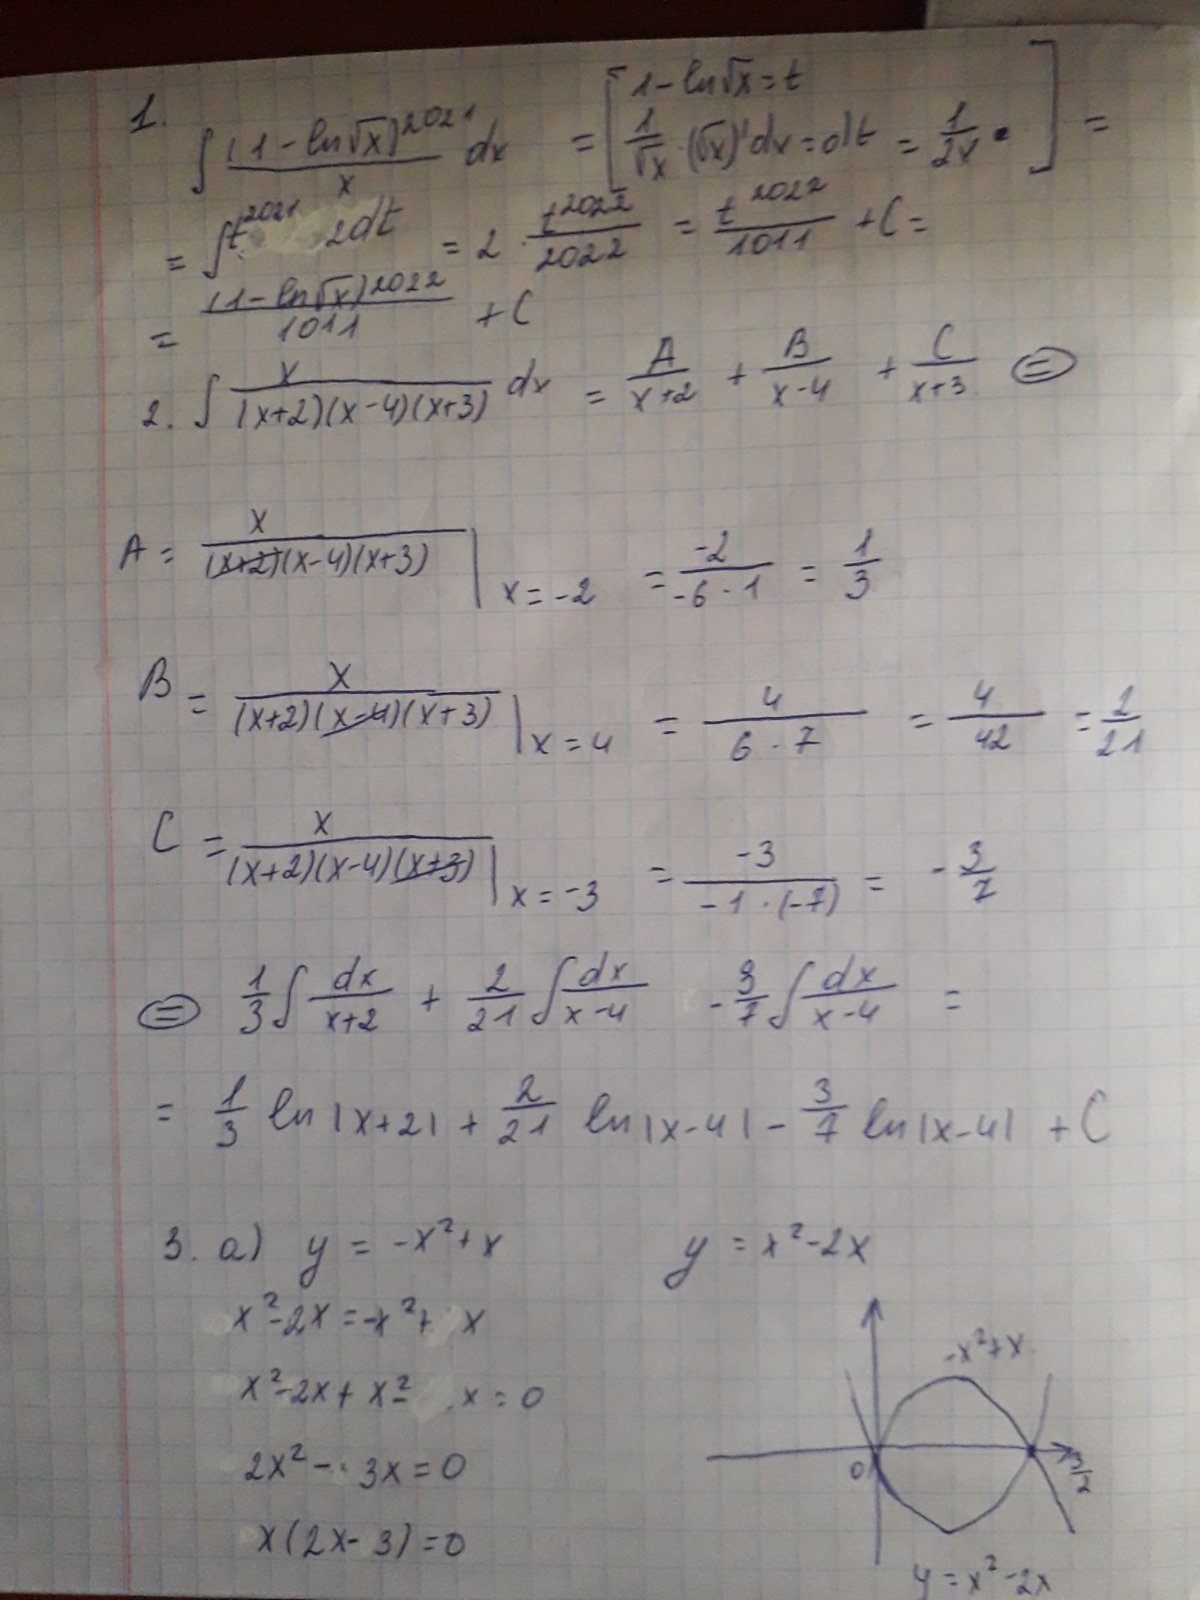 1. ∫ (1-ln√x)^2021 / x dx = [ 1-ln√x = t
1/√x · (√x)' dx = dt = 1/2x · ] =
= ∫ t^2021 2dt = 2 · t^2022 / 2022 = t^2022 / 1011 + C =
= (1-ln√x)^2022 / 1011 + C
2. ∫ x / (x+2)(x-4)(x+3) dx = A / x+2 + B / x-4 + C / x+3 ⊜
A = x / (x+2)(x-4)(x+3) | x=-2 = -2 / -6·1 = 1/3
B = x / (x+2)(x-4)(x+3) | x=4 = 4 / 6·7 = 4/42 = 2/21
C = x / (x+2)(x-4)(x+3) | x=-3 = -3 / -1·(-7) = -3/7
⊜ 1/3 ∫ dx / x+2 + 2/21 ∫ dx / x-4 - 3/7 ∫ dx / x-4 =
= 1/3 ln|x+2| + 2/21 ln|x-4| - 3/7 ln|x-4| + C
3. a) y = -x²+x y = x²-2x
x²-2x = -x²+ x
x²-2x+x²- x = 0
2x²- 3x = 0
x(2x-3) = 0
-x²+x
0
3/2
y = x²-2x